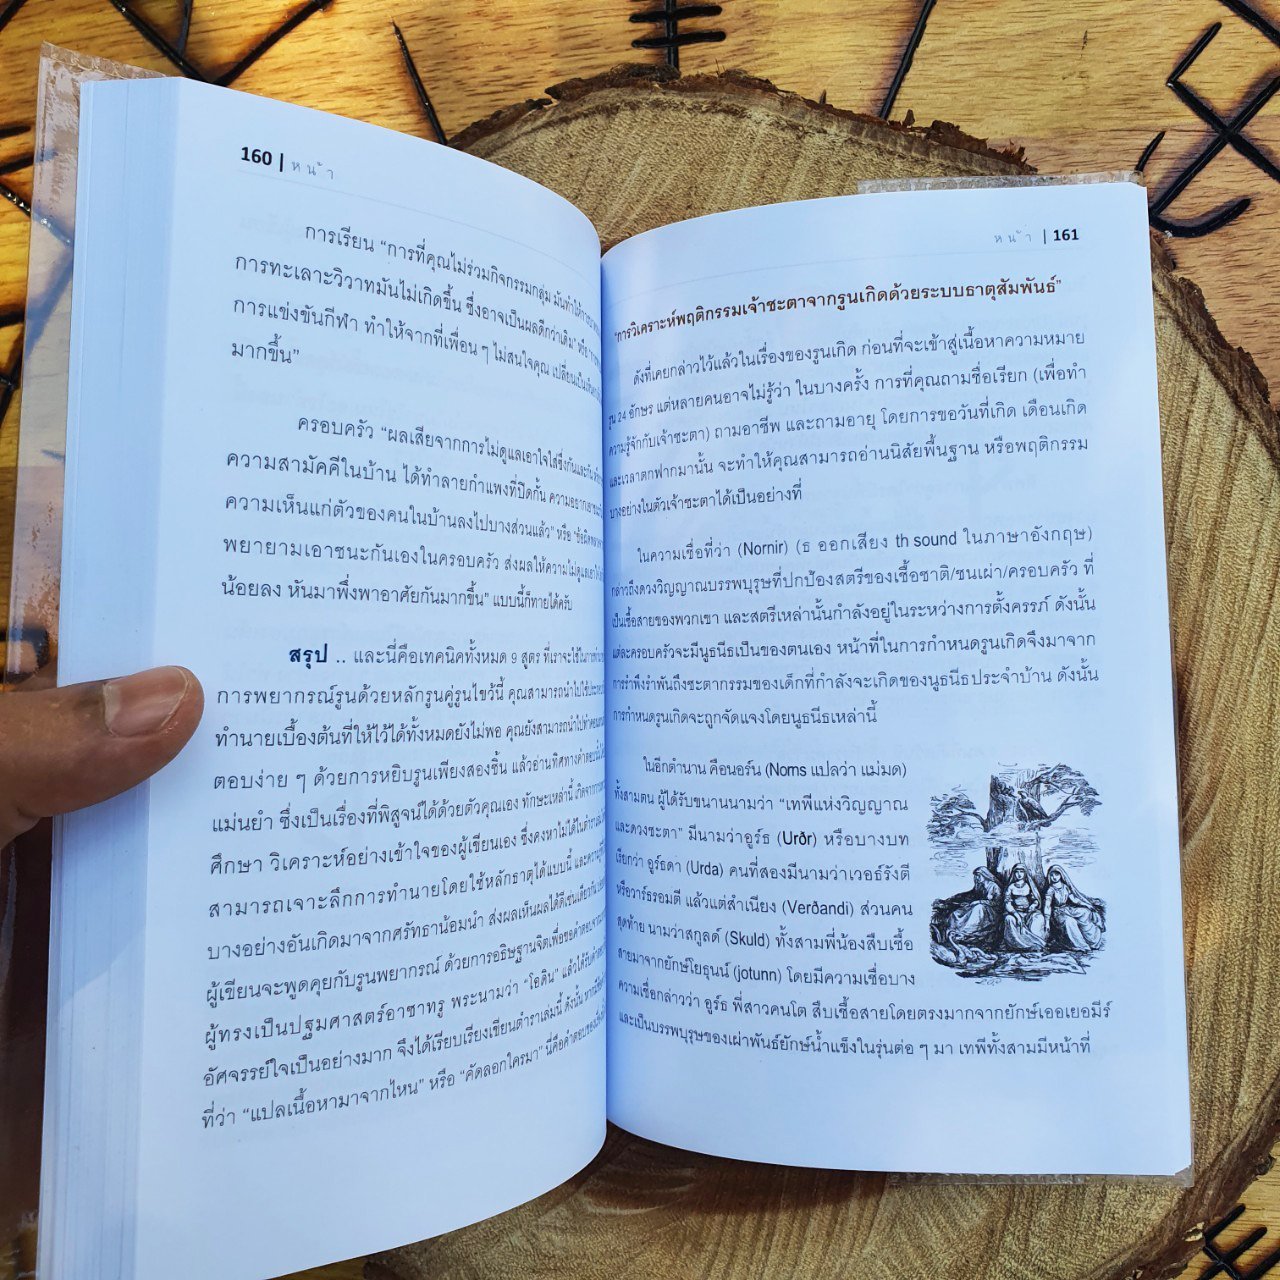 160 | หน้า
การเรียน “การที่คุณไม่ร่วมกิจกรรมกลุ่ม มันทำให้การ
การทะเลาะวิวาทมันไม่เกิดขึ้น ซึ่งอาจเป็นผลดีกว่าเดิม”
การแข่งขันกีฬา ทำให้จากที่เพื่อน ๆ ไม่สนใจคุณ เปลี่ยนเป็น
มากขึ้น”
ครอบครัว “ผลเสียจากการไม่ดูแลเอาใจใส่ซึ่งกันและกัน
ความสามัคคีในบ้าน ได้ทำลายกำแพงที่ปิดกั้น
ความเห็นแก่ตัวของคนในบ้านลงไปบางส่วนแล้ว” หรือ
พยายามเอาชนะกันเองในครอบครัว ส่งผลให้ความไม่ดูแล
น้อยลง หันมาพึ่งพาอาศัยกันมากขึ้น” แบบนี้ก็ทายได้ครับ
สรุป .. และนี่คือเทคนิคทั้งหมด 9 สูตร ที่เราจะใช้ในการ
การพยากรณ์รูนด้วยหลักรูนคู่รูนไขว้นี้ คุณสามารถนำไปใช้
ทำนายเบื้องต้นที่ให้ไว้ได้ทั้งหมดยังไม่พอ คุณยังสามารถนำไป
ตอบง่าย ๆ ด้วยการหยิบรูนเพียงสองชิ้น แล้วอ่านทิศทางคำตอบ
แม่นยำ ซึ่งเป็นเรื่องที่พิสูจน์ได้ด้วยตัวคุณเอง ทักษะเหล่านี้ เกิดจากการ
ศึกษา วิเคราะห์อย่างเข้าใจของผู้เขียนเอง ซึ่งคงหาไม่ได้ในตำรา
สามารถเจาะลึกการทำนายโดยใช้หลักธาตุได้แบบนี้ และความรู้
บางอย่างอันเกิดมาจากศรัทธาน้อมนำ ส่งผลเห็นผลได้ดีเช่นเดียวกัน
ผู้เขียนจะพูดคุยกับรูนพยากรณ์ ด้วยการอธิษฐานจิตเพื่อขอคำตอบ
ผู้ทรงเป็นปฐมศาสตร์อาซาทรู พระนามว่า “โอดิน” แล้วได้รับคำตอบ
อัศจรรย์ใจเป็นอย่างมาก จึงได้เรียบเรียงเขียนตำราเล่มนี้ ดังนั้น
ที่ว่า “แปลเนื้อหามาจากไหน” หรือ “คัดลอกใครมา” นี่คือคำตอบของ
หน้า | 161
“การวิเคราะห์พฤติกรรมเจ้าชะตาจากรูนเกิดด้วยระบบธาตุสัมพันธ์”
ดังที่เคยกล่าวไว้แล้วในเรื่องของรูนเกิด ก่อนที่จะเข้าสู่เนื้อหาความหมาย
รูน 24 อักษร แต่หลายคนอาจไม่รู้ว่า ในบางครั้ง การที่คุณถามชื่อเรียก (เพื่อทำ
ความรู้จักกับเจ้าชะตา) ถามอาชีพ และถามอายุ โดยการขอวันที่เกิด เดือนเกิด
และเวลาตกฟากมานั้น จะทำให้คุณสามารถอ่านนิสัยพื้นฐาน หรือพฤติกรรม
บางอย่างในตัวเจ้าชะตาได้เป็นอย่างที่
ในความเชื่อที่ว่า (Nornir) (ธ ออกเสียง th sound ในภาษาอังกฤษ)
กล่าวถึงดวงวิญญาณบรรพบุรุษที่ปกป้องสตรีของเชื้อชาติ/ชนเผ่า/ครอบครัว ที่
เป็นเชื้อสายของพวกเขา และสตรีเหล่านั้นกำลังอยู่ในระหว่างการตั้งครรภ์ ดังนั้น
แต่ละครอบครัวจะมีนูธนีธเป็นของตนเอง หน้าที่ในการกำหนดรูนเกิดจึงมาจาก
การรำพึงรำพันถึงชะตากรรมของเด็กที่กำลังจะเกิดของนูธนีธประจำบ้าน ดังนั้น
การกำหนดรูนเกิดจะถูกจัดแจงโดยนูธนีธเหล่านี้
ในอีกตำนาน คือนอร์น (Norns แปลว่า แม่มด)
ทั้งสามตน ผู้ได้รับขนานนามว่า “เทพีแห่งวิญญาณ
และดวงชะตา” มีนามว่าอูร์ธ (Urðr) หรือบางบท
เรียกว่า อูร์ธดา (Urda) คนที่สองมีนามว่าเวอธ์รังตี
หรือวาร์ธรอมตี แล้วแต่สำเนียง (Verðandi) ส่วนคน
สุดท้าย นามว่าสกูลด์ (Skuld) ทั้งสามพี่น้องสืบเชื้อ
สายมาจากยักษ์โยธุนน์ (jotunn) โดยมีความเชื่อบาง
ความเชื่อกล่าวว่า อูร์ธ พี่สาวคนโต สืบเชื้อสายโดยตรงมากจากยักษ์เออเยอมีร์
และเป็นบรรพบุรุษของเผ่าพันธ์ยักษ์น้ำแข็งในรุ่นต่อ ๆ มา เทพีทั้งสามมีหน้าที่